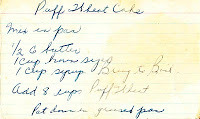 Puff Wheat Cake
Mix in pan
1/2 C butter
1 cup brown sugar
1 cup syrup Bring to Boil
Add 8 cups Puff Wheat
Pat down in greased pan